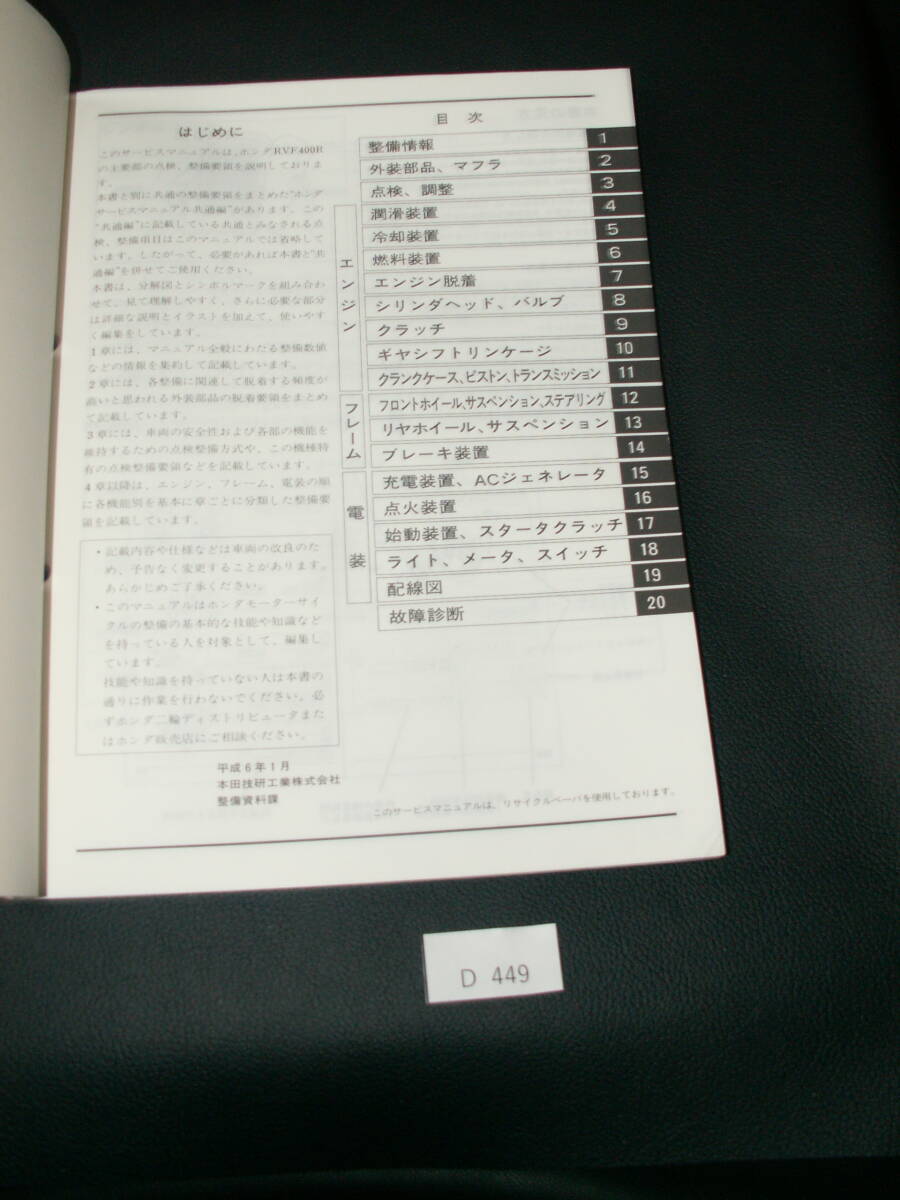 はじめに
このサービスマニュアルは、ホンダRVF400R
の主要部の点検、整備要領を説明しておりま
す。
本書と別に共通の整備要領をまとめた“ホンダ
サービスマニュアル共通編”があります。この
“共通編”に記載している共通とみなされる点
検、整備項目はこのマニュアルでは省略して
います。したがって、必要があれば本書と“共
通編”を併せてご使用ください。
本書は、分解図とシンボルマークを組み合わ
せて、見て理解しやすく、さらに必要な部分
は詳細な説明とイラストを加えて、使いやす
く編集をしています。
1章には、マニュアル全般にわたる整備数値
などの情報を集約して記載しています。
2章には、各整備に関連して脱着する頻度が
高いと思われる外装部品の脱着要領をまとめ
て記載しています。
3章には、車両の安全性および各部の機能を
維持するための点検整備方式や、この機種特
有の点検整備要領などを記載しています。
4章以降は、エンジン、フレーム、電装の順
に各機能別を基本に章ごとに分類した整備要
領を記載しています。
・記載内容や仕様などは車両の改良のた
め、予告なく変更することがあります。
あらかじめご了承ください。
・このマニュアルはホンダモーターサイ
クルの整備の基本的な技能や知識など
を持っている人を対象として、編集し
ています。
技能や知識を持っていない人は本書の
通りに作業を行わないでください。必
ずホンダ二輪ディストリビュータまた
はホンダ販売店にご相談ください。
平成6年1月
本田技研工業株式会社
整備資料課
目 次
整備情報 1
外装部品、マフラ 2
点検、調整 3
エンジン
潤滑装置 4
冷却装置 5
燃料装置 6
エンジン脱着 7
シリンダヘッド、バルブ 8
クラッチ 9
ギヤシフトリンケージ 10
クランクケース、ピストン、トランスミッション 11
フレーム
フロントホイール、サスペンション、ステアリング 12
リヤホイール、サスペンション 13
ブレーキ装置 14
電装
充電装置、ACジェネレータ 15
点火装置 16
始動装置、スタータクラッチ 17
ライト、メータ、スイッチ 18
配線図 19
故障診断 20
このサービスマニュアルは、リサイクルペーパを使用しております。
D 449